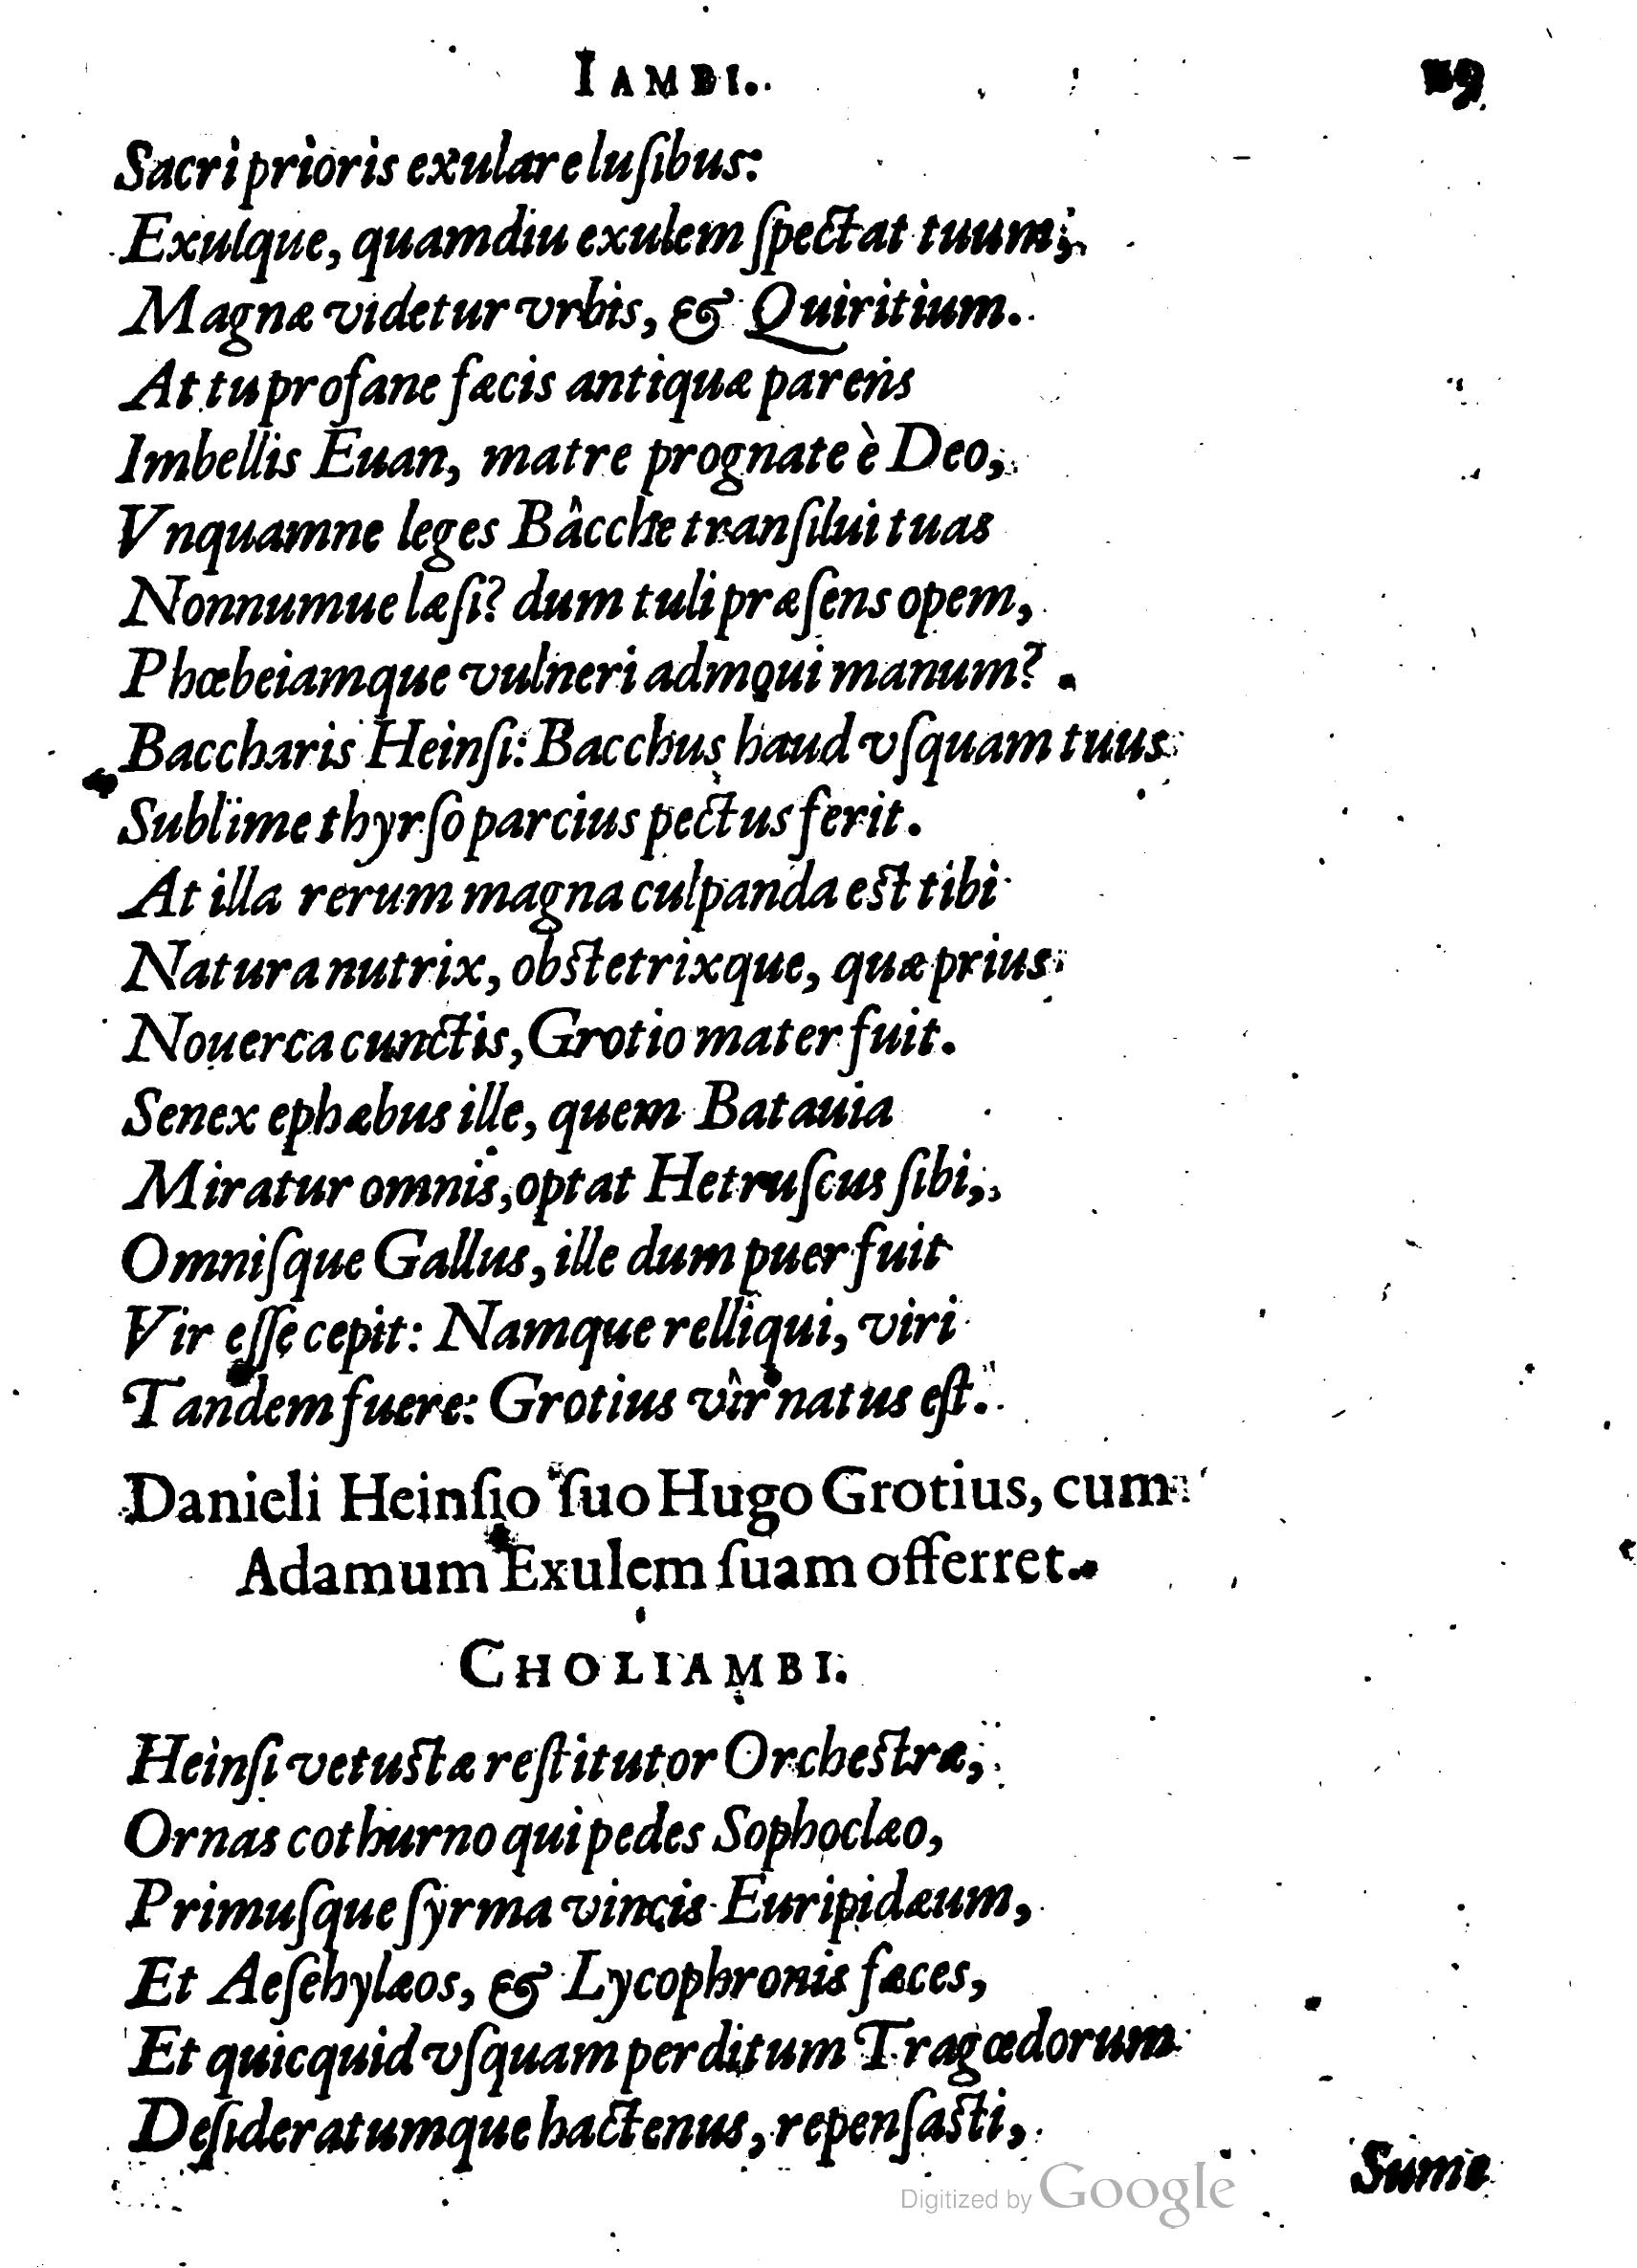 IAMBI.
Sacri prioris exulare luſibus:
Exulque, quamdiu exulem ſpectat tuum;
Magnæ videtur vrbis, & Quiritium.
At tu profane fæcis antiquæ parens
Imbellis Euan, matre prognate è Deo,
Vnquamne leges Bâcche tranſilui tuas
Nonnumue læſi? dum tuli præſens opem,
Phœbeiamque vulneri admoui manum?
Baccharis Heinſi: Bacchus haud vſquam tuus
Sublime thyrſo parcius pectus ferit.
At illa rerum magna culpanda eſt tibi
Natura nutrix, obſtetrixque, quæ prius
Nouerca cunctis, Grotio mater fuit.
Senex ephæbus ille, quem Batauia
Miratur omnis, optat Hetruſcus ſibi,
Omniſque Gallus, ille dum puer fuit
Vir eſſe cepit: Namque relliqui, viri
Tandem fuere: Grotius vîr natus eſt.
Danieli Heinſio ſuo Hugo Grotius, cum
Adamum Exulem ſuam offerret.
CHOLIAMBI.
Heinſi vetuſtæ reſtitutor Orcheſtræ,
Ornas cothurno qui pedes Sophoclæo,
Primuſque ſyrma vincis Euripidæum,
Et Aeſchylæos, & Lycophronis fæces,
Et quicquid vſquam perditum Tragœdorum
Deſideratumque hactenus, repenſaſti,
Sume
Digitized by Google